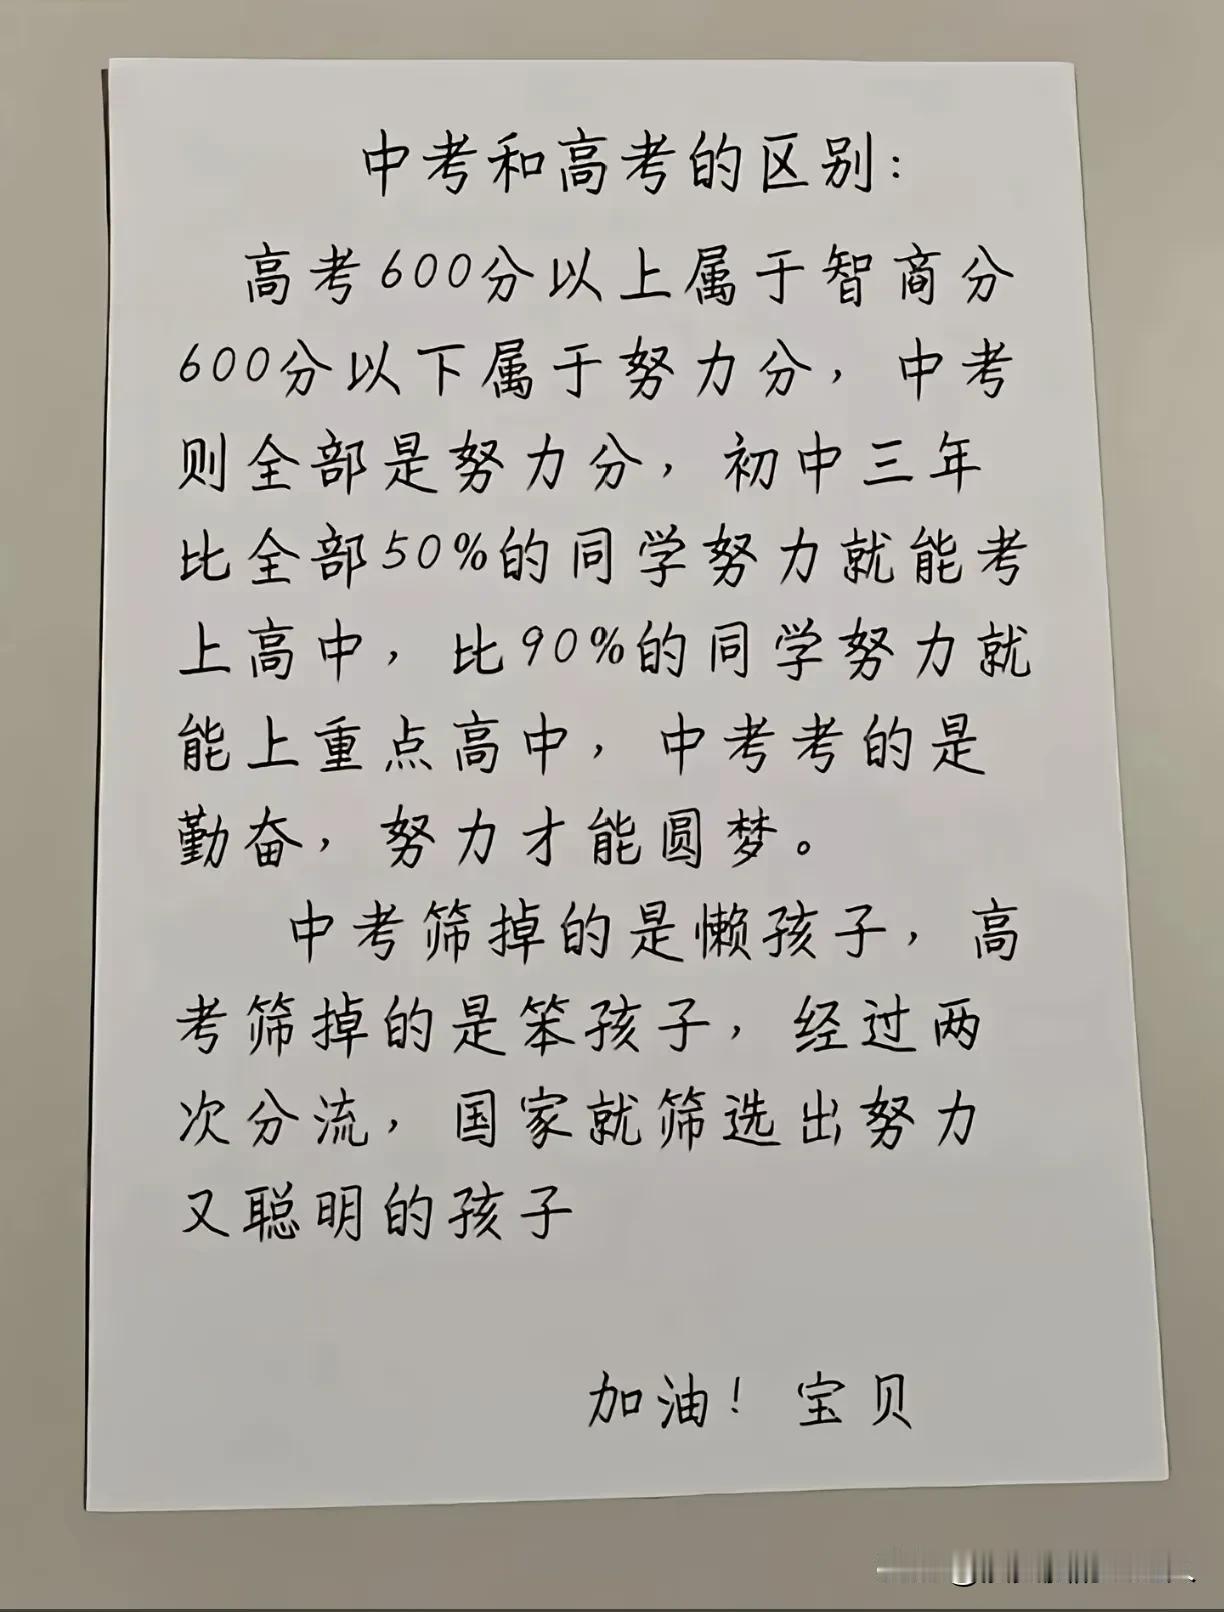 中考和高考的区别:
高考600分以上属于智商分
600分以下属于努力分，中考
则全部是努力分，初中三年
比全部50%的同学努力就能考
上高中，比90%的同学努力就
能上重点高中，中考考的是
勤奋，努力才能圆梦。
中考筛掉的是懒孩子，高
考筛掉的是笨孩子，经过两
次分流，国家就筛选出努力
又聪明的孩子
加油！宝贝